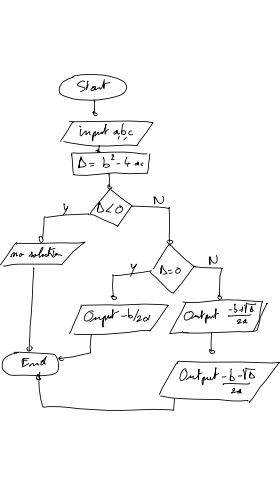 Start
input a,b,c
Δ = b² - 4 ac
Δ < 0
Y
N
no solution
Δ = 0
Y
N
Output -b/2a
Output -b+√Δ/2a
Output -b-√Δ/2a
End